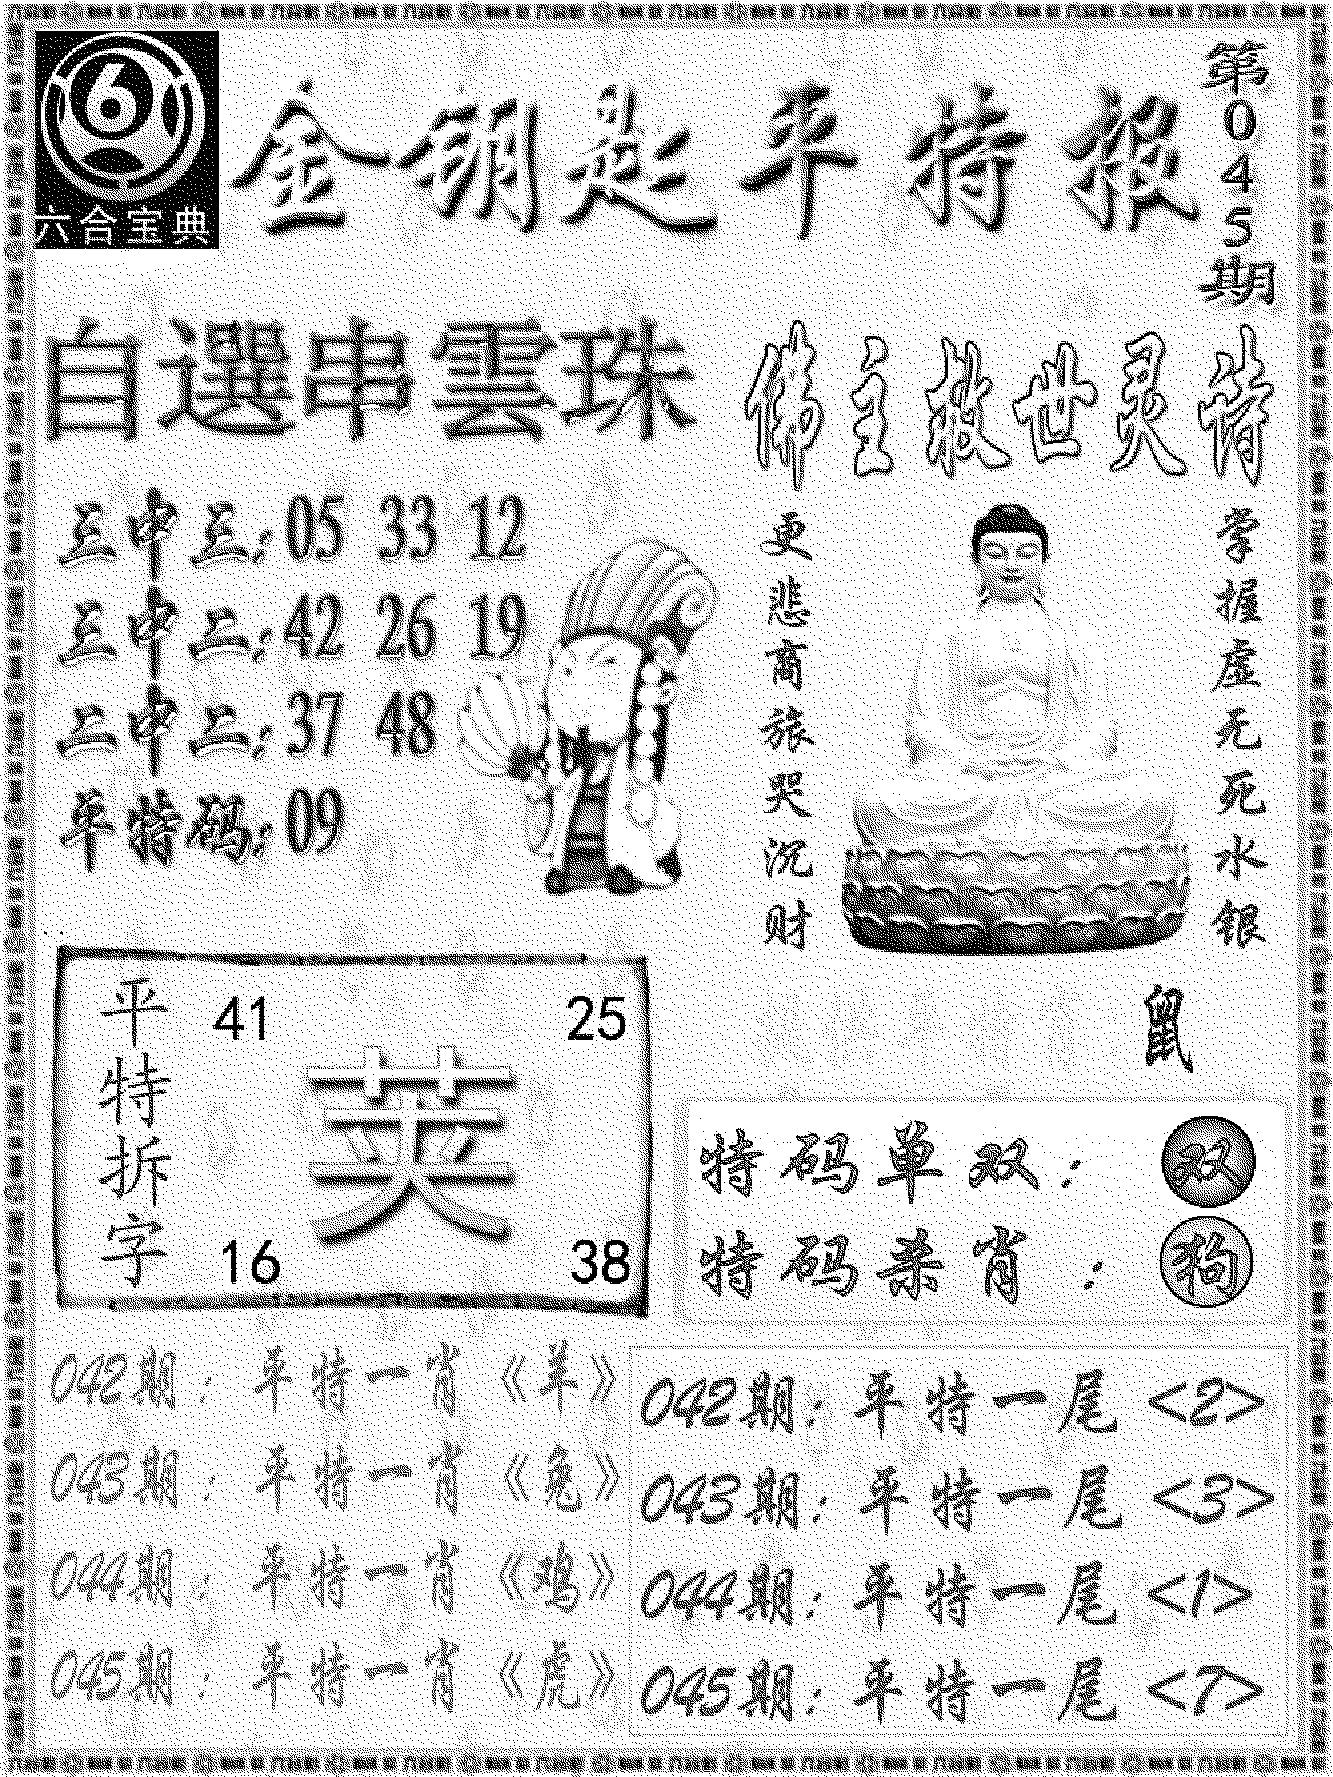 六合宝典
金钥匙平特报
第045期
自選串雲珠
三中三:05 33 12
三中二:42 26 19
二中二:37 48
平特码:09
佛主救世灵诗
掌握虚无死水银
更悲商旅哭沉财
鼠
平特拆字
41 25
英
16 38
特码单双:双
特码杀肖:狗
042期:平特一肖《羊》
043期:平特一肖《兔》
044期:平特一肖《鸡》
045期:平特一肖《虎》
042期:平特一尾<2>
043期:平特一尾<3>
044期:平特一尾<1>
045期:平特一尾<7>